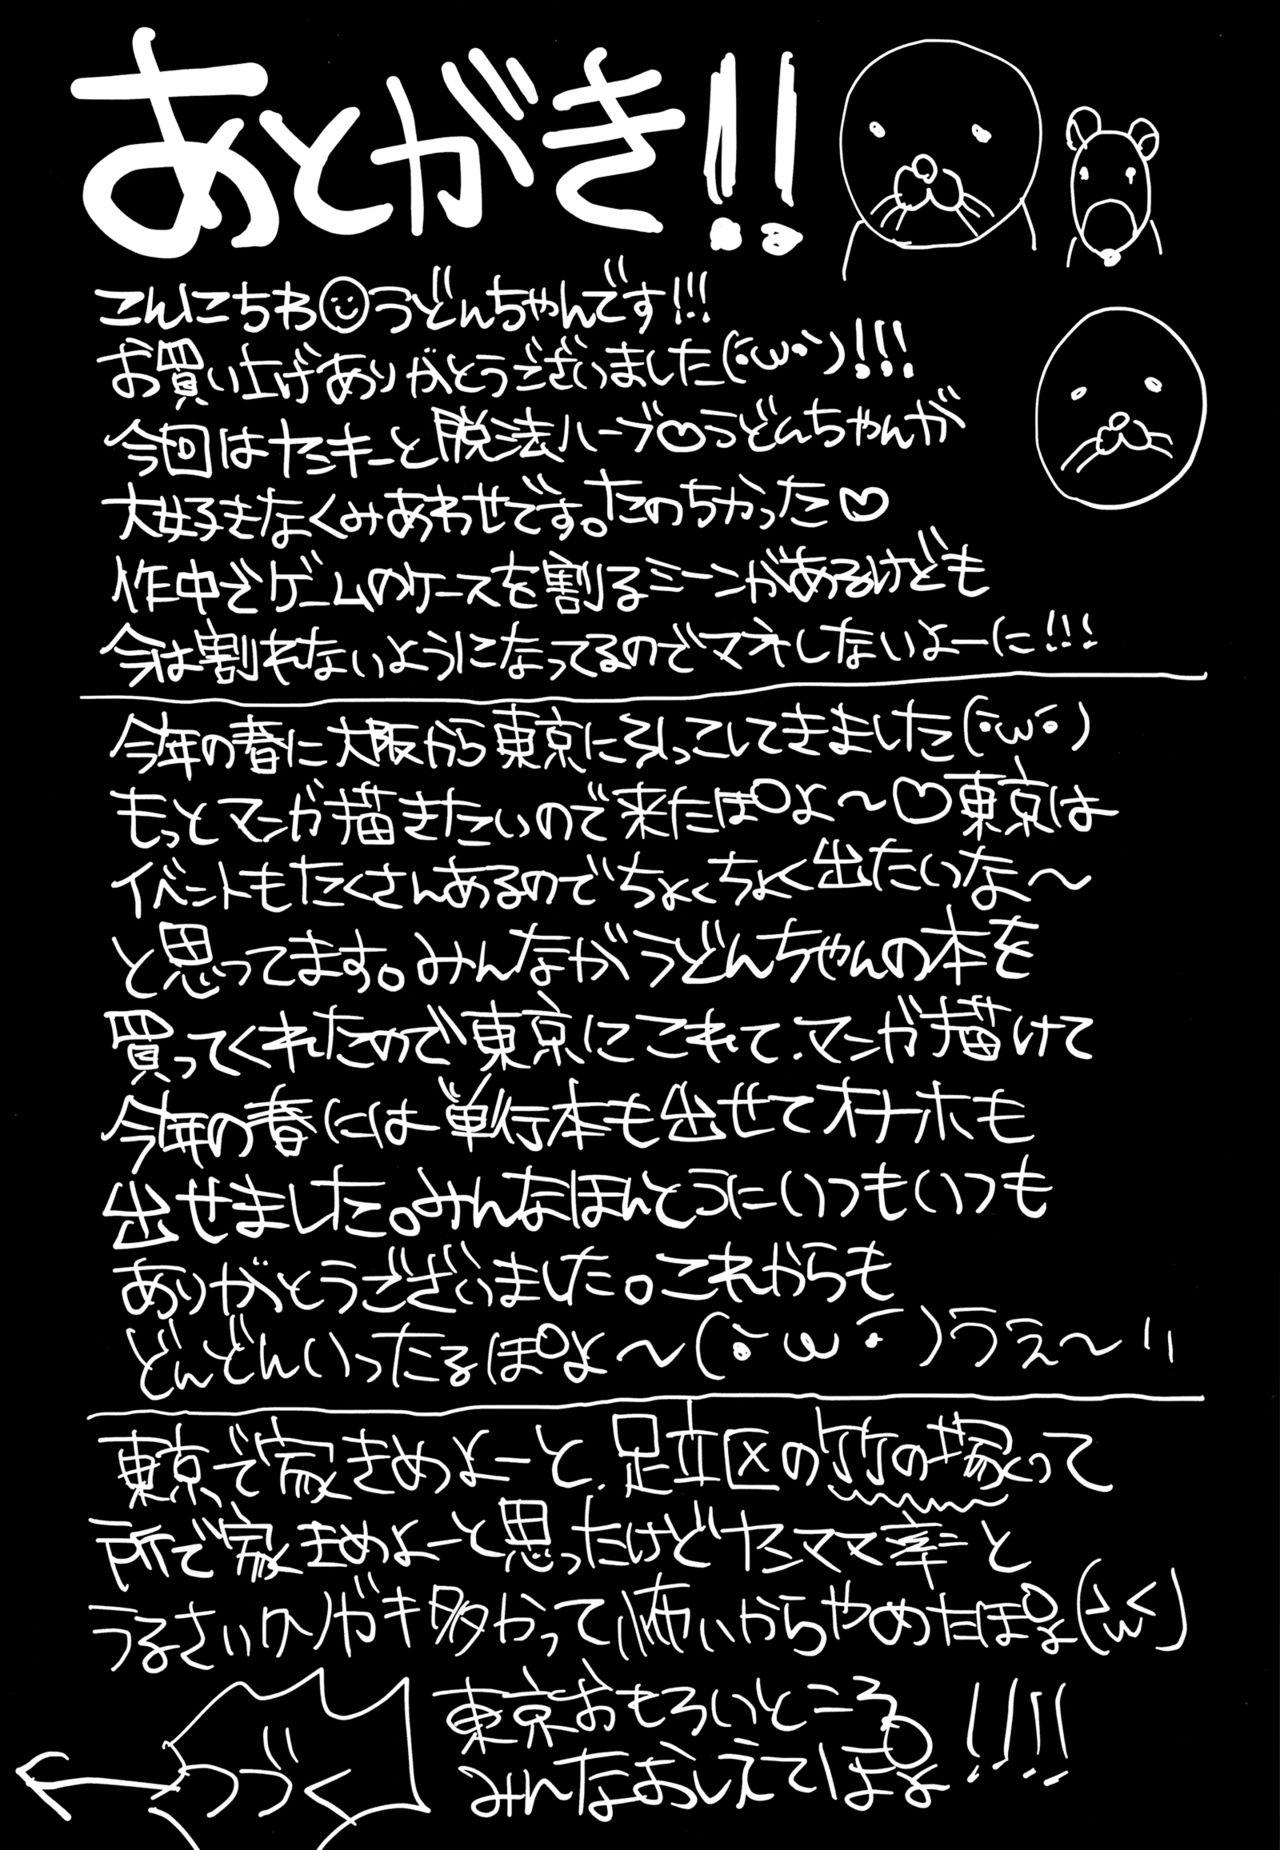 あとがき!!
こんにちわうどんちゃんです!!!
お買い上げありがとうございました(・ω・)!!!
今回はヤンキーと脱法ハーブ♡うどんちゃんが
大好きなくみあわせです。たのちかった♡
作中でゲームのケースを割るシーンがあるけども
今は割れないようになってるのでマネしないよーに!!!
今年の春に大阪から東京に引っこしてきました(・ω・)
もっとマンガ描きたいので来たぽよ〜♡東京は
イベントもたくさんあるのでちょくちょく出たいな〜
と思ってます。みんながうどんちゃんの本を
買ってくれたので東京にこれて、マンガ描けて
今年の春には単行本も出せてオナホも
出せました。みんなほんとうにいつもいつも
ありがとうございました。これからも
どんどんいったるぽよ〜(・ω・)うぇ〜い
東京で家きめよーと、足立区の竹の塚って
所で家きめよーと思ったけどヤンママ率と
うるさいクソガキ多かって怖いからやめたぽよ
東京おもろいところ!!!!
みんなおしえてぽよ
つづく